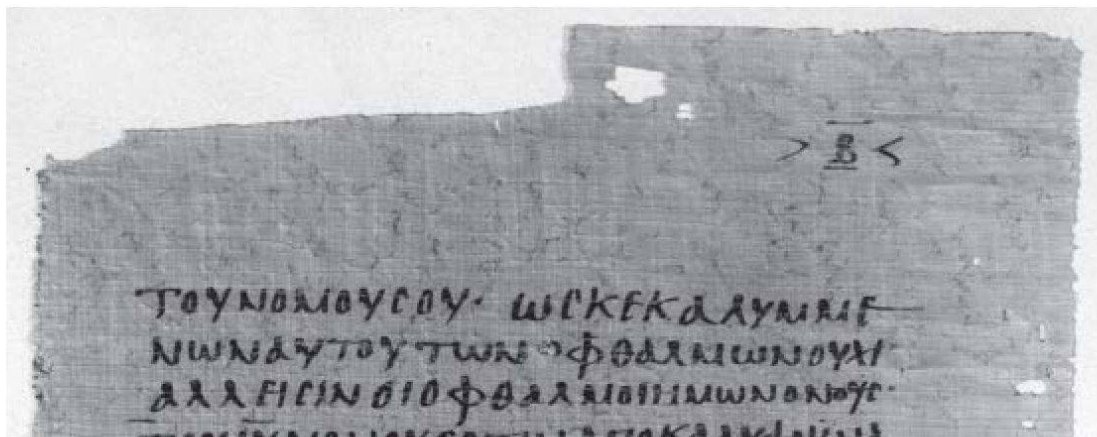 > Β <
ΤΟΥΝΟΜΟΥϹΟΥ· ΩϹΚΕΚΑΛΥΜΜΕ
ΝΩΝΑΥΤΟΥΤΩΝΟΦΘΑΛΜΩΝΟΥΧΙ
ΑΛΛΕΙϹΙΝΟΙΟΦΘΑΛΜΟΙΗΜΩΝΟΝΟΥϹ·